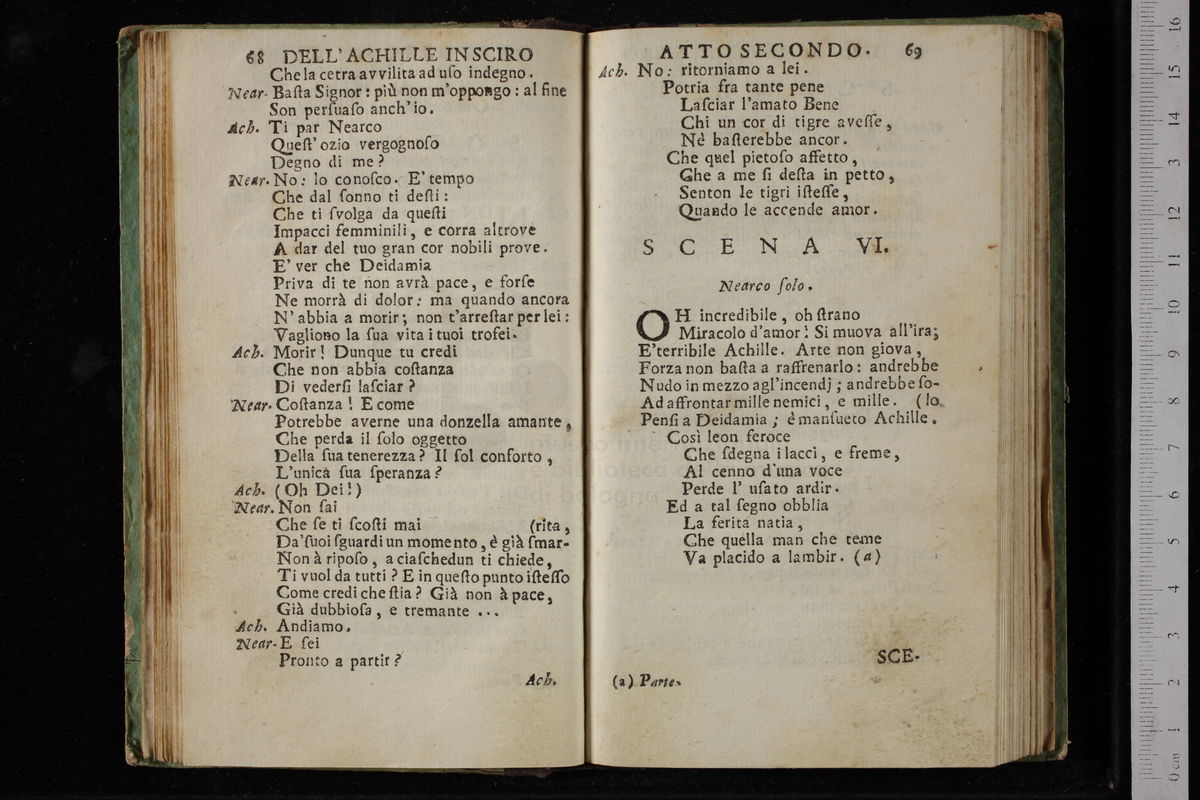 68 DELL'ACHILLE IN SCIRO
Che la cetra avvilita ad uſo indegno.
Near. Baſta Signor: più non m'oppongo: al fine
Son perſuaſo anch'io.
Ach. Ti par Nearco
Queſt' ozio vergognoſo
Degno di me?
Near. No: lo conoſco. E' tempo
Che dal ſonno ti deſti:
Che ti ſvolga da queſti
Impacci femminili, e corra altrove
A dar del tuo gran cor nobili prove.
E' ver che Deidamia
Priva di te non avrà pace, e forſe
Ne morrà di dolor: ma quando ancora
N'abbia a morir; non t'arreſtar per lei:
Vagliono la ſua vita i tuoi trofei.
Ach. Morir! Dunque tu credi
Che non abbia coſtanza
Di vederſi laſciar?
Near. Coſtanza! E come
Potrebbe averne una donzella amante,
Che perda il ſolo oggetto
Della ſua tenerezza? Il ſol conforto,
L'unica ſua ſperanza?
Ach. (Oh Dei!)
Near. Non ſai
Che ſe ti ſcoſti mai (rita,
Da'ſuoi ſguardi un momento, è già ſmar-
Non à ripoſo, a ciaſchedun ti chiede,
Ti vuol da tutti? E in queſto punto iſteſſo
Come credi che ſtia? Già non à pace,
Già dubbioſa, e tremante ...
Ach. Andiamo.
Near. E ſei
Pronto a partir?
Ach.
ATTO SECONDO. 69
Ach. No: ritorniamo a lei.
Potria fra tante pene
Laſciar l'amato Bene
Chi un cor di tigre aveſſe,
Nè baſterebbe ancor.
Che quel pietoſo affetto,
Che a me ſi deſta in petto,
Senton le tigri iſteſſe,
Quando le accende amor.
SCENA VI.
Nearco ſolo.
OH incredibile, oh ſtrano
Miracolo d'amor! Si muova all'ira;
E'terribile Achille. Arte non giova,
Forza non baſta a raffrenarlo: andrebbe
Nudo in mezzo agl'incendj; andrebbe ſo-
Ad affrontar mille nemici, e mille. (lo
Penſi a Deidamia; è manſueto Achille.
Così leon feroce
Che ſdegna i lacci, e freme,
Al cenno d'una voce
Perde l' uſato ardir.
Ed a tal ſegno obblia
La ferita natia,
Che quella man che teme
Va placido a lambir. (a)
SCE-
(a) Parte.
museo inter
e biblioteca d
di bologna
0 cm 1 2 3 4 5 6 7 8 9 10 11 12 13 14 15 16